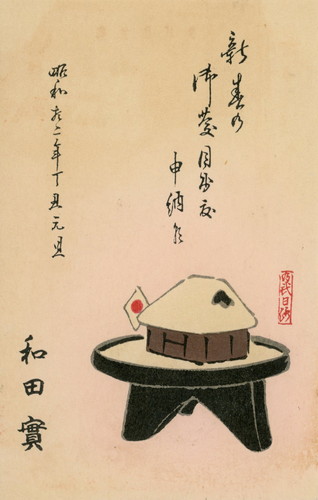 新春の
御慶目出度
申納候
昭和十二年丁丑元旦
和田實